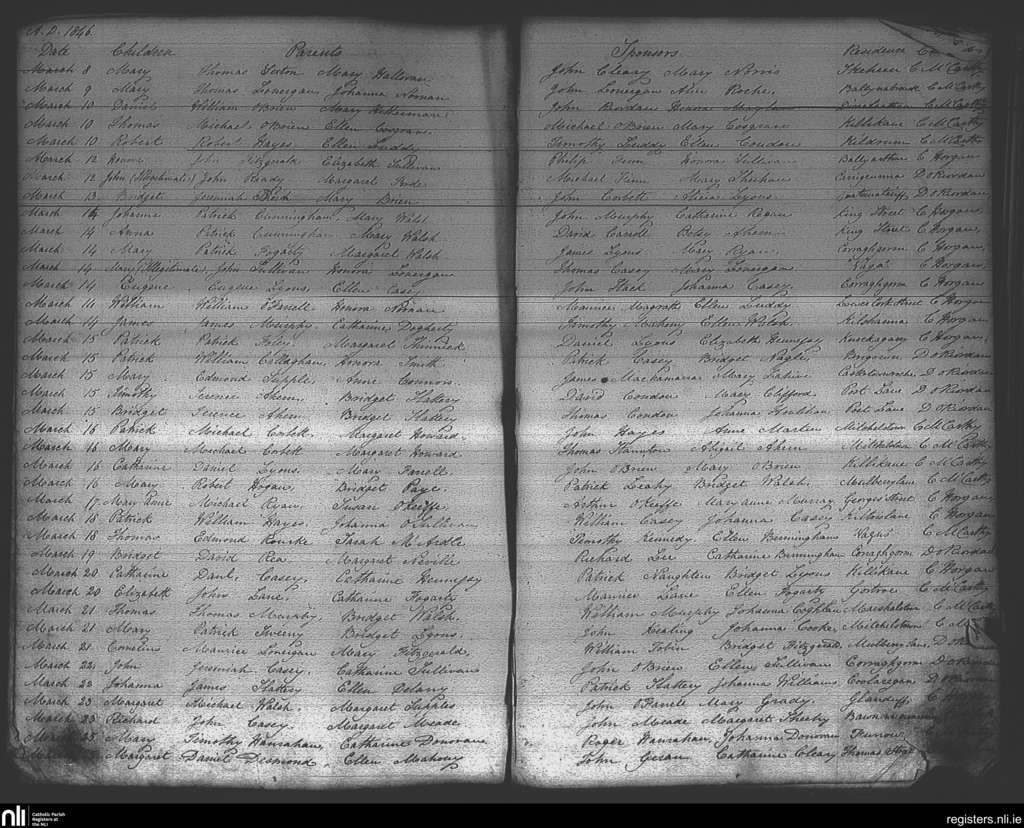 A.D. 1846.
Date Children Parents Sponsors Residence
March 8 Mary Thomas Sexton Mary Halloran John Cleary Mary Norris C McCarthy
March 9 Mary Thomas Lonergan Johanna Noonan John Lonergan Alice Roche, C McCarthy
March 10 Daniel William OBrien Mary John Riordan Honora C McCarthy
March 10 Thomas Michael OBrien Ellen Cosgrave, Michael OBrien Mary Cosgrave Killikane C McCarthy
March 10 Robert Robert Hayes Ellen Luddy Timothy Luddy Ellen Condon Kildrum C McCarthy
March 12 Honora John Fitzgerald Elizabeth Sullivan Philip Finn Honora Sullivan Ballyarthur C Horgan
March 12 John (Illegitimate) John Ready Margaret Michael Finn Mary Sheehan Carrigeunna D oRiordan
March 13 Bridget Jeremiah Mary Brien John Corbett Alicia Lyons D oRiordan
March 14 Johanna Patrick Cunningham Mary Walsh John Murphy Catharine Regan King Street C Horgan,
March 14 Anna Patrick Cunningham Mary Walsh David Carroll Betsy Ahern King Street C Horgan,
March 14 Mary Patrick Fogarty Margaret Walsh James Lyons Mary Ryan, Corraghgorm C Horgan,
March 14 Mary (Illegitimate) John Sullivan Honora Lonergan Thomas Casey Mary Lonergan C Horgan,
March 14 Eugene Eugene Lyons, Ellen Casey John Slack Johanna Casey Corraghgorm C Horgan,
March 14 William William OFarrell Honora Noonan Maurice Magrath Ellen Luddy Lower Cork Street C Horgan
March 14 James James Murphy Catharine Dogherty Timothy Mahony Ellen Walsh Kilshanna C Horgan
March 15 Patrick Patrick Foley Margaret Daniel Lyons Elizabeth Hennessy C Horgan,
March 15 Patrick William Callaghan, Honora Smith Patrick Casey Bridget Nagle, Brigown D oRiordan
March 15 Mary Edmond Supple, Anne Connors James Mackamara Mary D oRiordan
March 15 Timothy Terence Ahern, Bridget Slattery David Condon Mary Clifford Post Lane D oRiordan
March 15 Bridget Terence Ahern Bridget Slattery Thomas Condon Johanna Houlihan Post Lane D oRiordan
March 16 Patrick Michael Corbett, Margaret Howard John Hayes Anne Martin Mitchelstown C McCarthy
March 16 Mary Michael Corbett Margaret Howard Thomas Abigail Ahern Mitchelstown C McCarthy
March 16 Catharine Daniel Lyons, Mary Farrell, John OBrien Mary OBrien Killikane C McCarthy
March 16 Mary Robert Hogan, Bridget Paye. Patrick Leahy Bridget Walsh, C McCarthy
March 17 Mary Anne Michael Ryan, Susan OKeeffe, Arthur OKeeffe Maryanne Murray Georges Street C Horgan,
March 18 Patrick William Hayes, Johanna OSullivan William Casey Johanna Casey C Horgan
March 18 Thomas Edmond Rourke Sarah McArdle Timothy Kennedy, Ellen Bermingham C McCarthy
March 19 Bridget David Rea Margaret Neville Richard Lee Catharine Birmingham Corraghgorm D oRiordan
March 20 Catharine Danl. Casey, Catharine Hennessy Patrick Naughten Bridget Lyons Killikane C Horgan
March 20 Elizabeth John Lane, Catharine Fogarty Maurice Lane Ellen Fogarty Gortroe C McCarthy
March 21 Thomas Thomas Murphy, Bridget Walsh, William Murphy Johanna Coghlan Marshalstown C McCarthy
March 21 Mary Patrick Bridget Lyons John Keating Johanna Cooke, Mitchelstown C M
March 21 Cornelius Maurice Lonergan Mary Fitzgerald, William Tobin Bridget Fitzgerald D oR
March 22 John Jeremiah Casey, Catharine Sullivan John OBrien Ellen Sullivan Corraghgorm D oRiordan
March 23 Johanna James Slattery Ellen Delany Patrick Slattery Johanna Williams Coolaregan D oRiordan
March 23 Margaret Michael Walsh, Margaret Supples John OFarrell Mary Grady, Glenduff C
March 23 Richard John Casey, Margaret Meade John Meade Margaret Sheehy
Mary Timothy Hanrahan, Catharine Donovan Roger Hanrahan, Johanna Donovan
Margaret Daniel Desmond, Ellen Mahony John Catharine Cleary Thomas Street
nli
Catholic Parish
Registers at
the NLI
registers.nli.ie